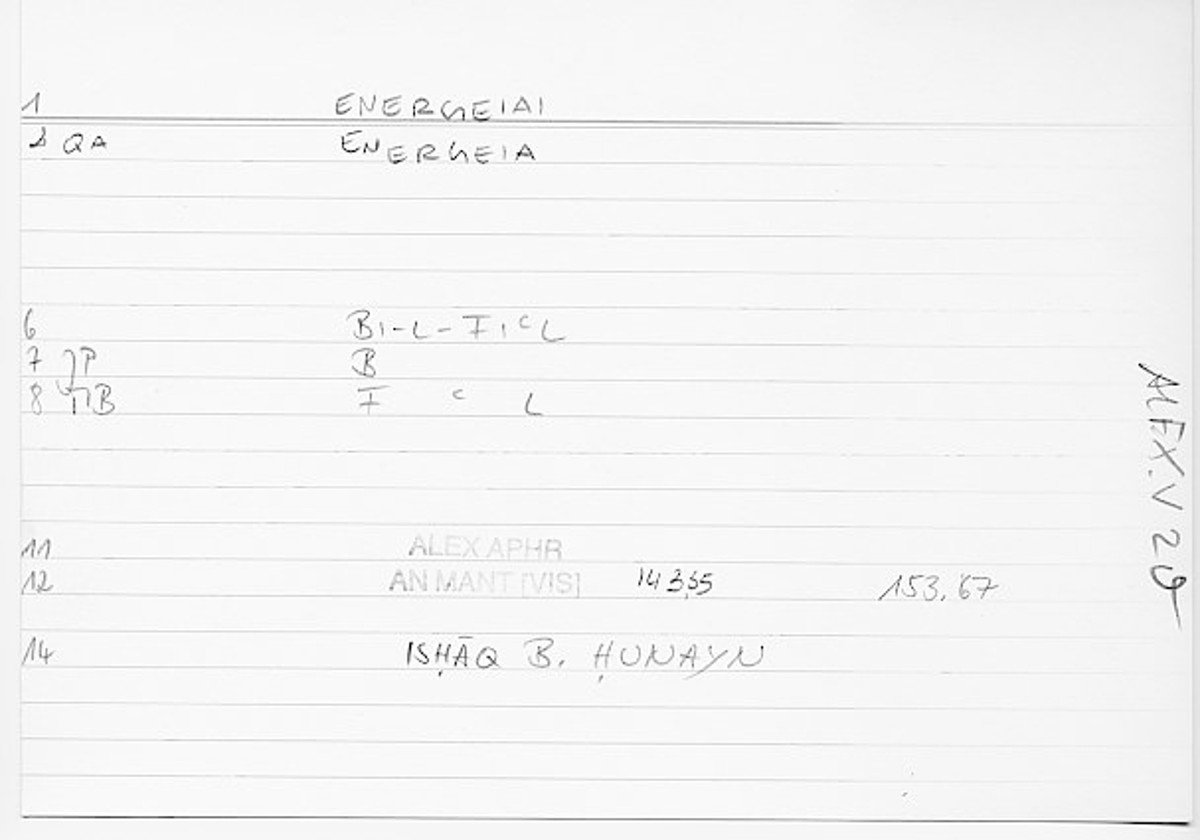 1 ENERGEIAI
2 QA ENERGEIA
6 BI-L-FIcL
7 JP B
8 NB F c L
11 ALEX APHR
12 AN MANT [VIS] 143,5 153,67
14 ISḤĀQ B. ḤUNAYN
ALEX.V 29